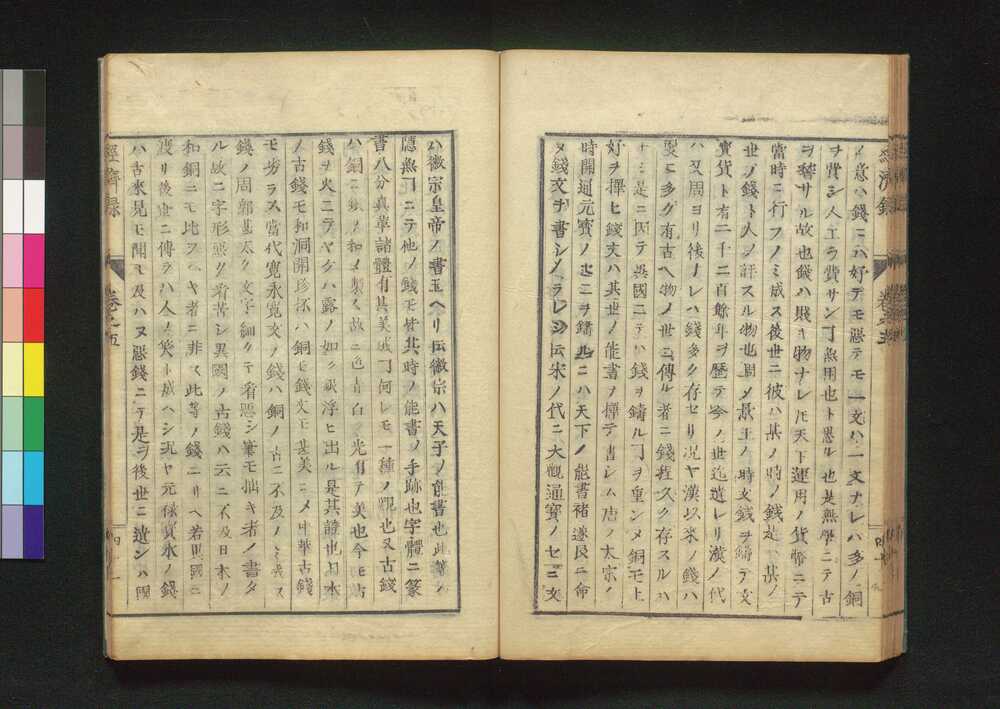 メ意ハ錢ニハ好テモ惡テモ一文ハ一文ナレハ多ノ銅
ヲ費シ人工ヲ費サン丁無用也ト思ル也是無學ニテ古
ヲ稽サル故也錢ハ賎キ物ナレ𪜈天下運用ノ貨幣ニテ
當時ニ行フノミ成ス後世ニ彼ハ某ノ時ノ錢是ハ某ノ
世ノ錢ト人ノ評スル物也周ノ景王ノ時文錢ヲ鑄テ文
寳貨ト有二千二百餘年ヲ歴テ今ノ世迄遺レリ漢ノ代
ハ又周ヨリ後ナレハ錢多ク存セリ况ヤ漢以來ノ錢ハ
ニ多ク有古ヘノ物ノ世ニ傳ル者ニ錢程久ク存スルハ
ナシ是ニ因テ異國ニテハ錢ヲ鑄ル丁ヲ重ンメ銅モ上
好ヲ擇ヒ錢文ハ其世ノ能書ヲ擇テ書シム唐ノ太宗ノ
時開通元寳ノ セニヲ鑄ルニハ天下ノ能書褚遂良ニ命
メ錢文ヲ書シメラレシ 伝宋ノ代ニ大觀通寳ノセニ文
ハ徽宗皇帝ノ書玉ヘリ伝徽宗ハ天子ノ能書也此等ノ
隠無丁ニテ他ノ錢モ皆其時ノ能書ノ手跡也字體ニ篆
書八分真草諸體有其美 丁何レモ一種ノ觀也又古錢
ハ銅ニ ノ和メ製ス故ニ色青白ク光有テ美也今モ古
錢ヲ火ニテヤケハ露ノ如ク 浮ヒ出ル是其證也日本
ノ古錢モ和洞開珎抔ハ銅モ錢文モ甚美ニメ中華古錢
モ劣ラス當代寛永寛文ノ錢ハ銅ノ古ニ不及ノミ成ス
錢ノ周郭甚太ク文字細クテ看惡シ筆モ拙キ者ノ書タ
ル故ニ字形惡ク看苦シ異國ノ古錢ハ云ニ不及日本ノ
和銅ニモ比スヘキ者ニ非ス此等ノ錢ニリヘ若異國ニ
渡リ後世ニ傳ラハ人ノ笑ト成ヘシ况ヤ元祿寳永ノ錢
ハ古來見モ聞モ及ハヌ惡錢ニテ是ヲ後世ニ遺シハ國
經濟録
卷之五